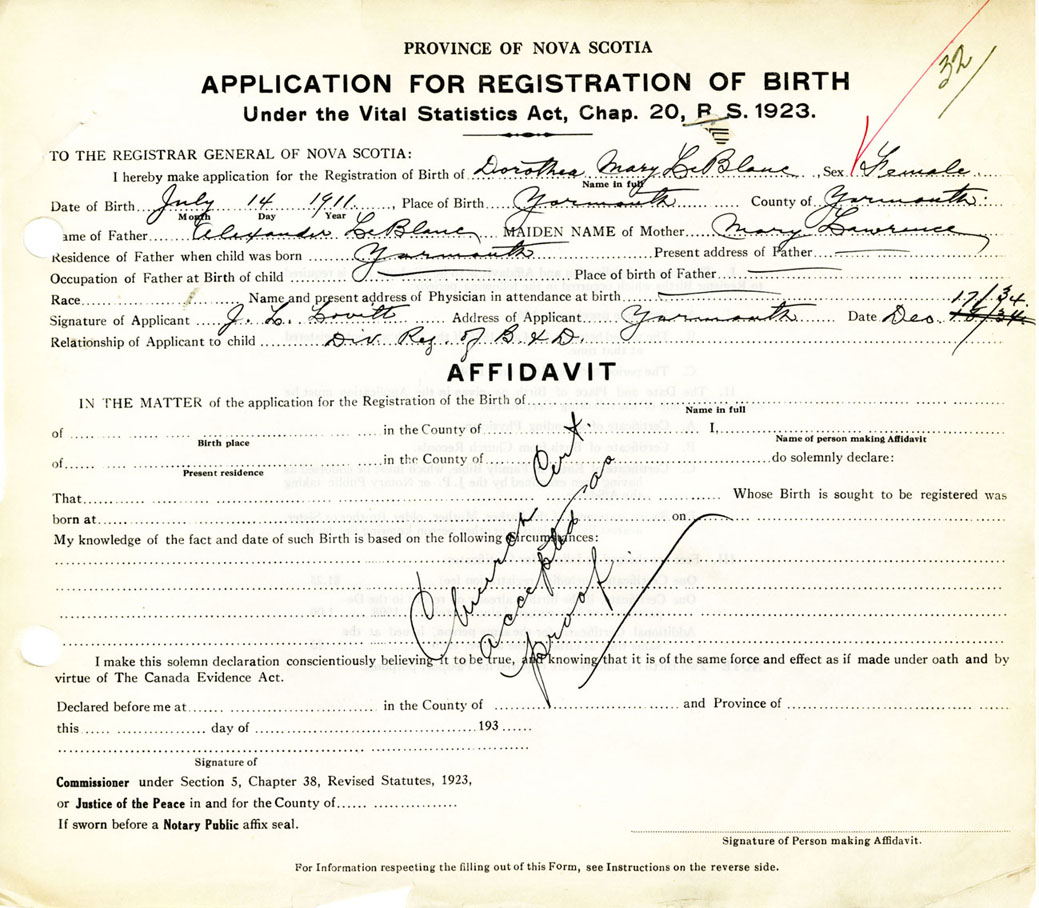 32
PROVINCE OF NOVA SCOTIA
APPLICATION FOR REGISTRATION OF BIRTH
Under the Vital Statistics Act, Chap. 20, R. S. 1923.
TO THE REGISTRAR GENERAL OF NOVA SCOTIA:
I hereby make application for the Registration of Birth of Dorothea Mary LeBlanc, Sex Female
Name in full
Date of Birth July 14 1911, Place of Birth Yarmouth County of Yarmouth.
Month Day Year
ame of Father Alexander LeBlanc MAIDEN NAME of Mother Mary Lawrence
Residence of Father when child was born Yarmouth Present address of Father
Occupation of Father at Birth of child Place of birth of Father
Race Name and present address of Physician in attendance at birth
17/34.
Signature of Applicant J. L. Lovitt Address of Applicant Yarmouth Date Dec.
Relationship of Applicant to child Div Reg. of B & D.
AFFIDAVIT
IN THE MATTER of the application for the Registration of the Birth of
Name in full
of in the County of I,
Birth place Name of person making Affidavit
of in the County of do solemnly declare:
Present residence
That Whose Birth is sought to be registered was
born at on
My knowledge of the fact and date of such Birth is based on the following circumstances:
Church Cert.
accepted as
proof.
I make this solemn declaration conscientiously believing it to be true, and knowing that it is of the same force and effect as if made under oath and by
virtue of The Canada Evidence Act.
Declared before me at in the County of and Province of
this day of 193
Signature of
Commissioner under Section 5, Chapter 38, Revised Statutes, 1923,
or Justice of the Peace in and for the County of
If sworn before a Notary Public affix seal.
Signature of Person making Affidavit.
For Information respecting the filling out of this Form, see Instructions on the reverse side.